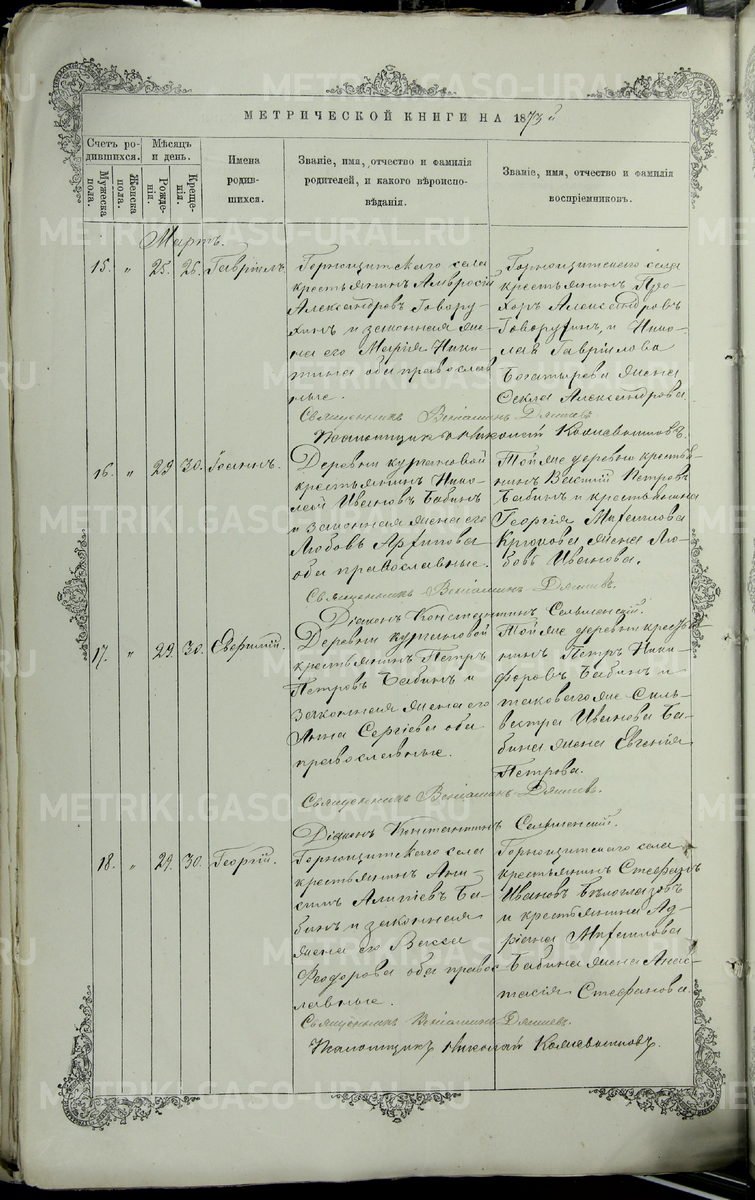 МЕТРИЧЕСКОЙ КНИГИ НА 1873й
Счетъ ро-
дившихся.
Мужеска
пола.
Женска
пола.
Мѣсяцъ
и день.
Рожде-
нія.
Креще-
нія.
Имена
родив-
шихся.
Званіе, имя, отчество и фамилія
родителей, и какого вѣроиспо-
вѣданія.
Званіе, имя, отчество и фамилія
воспріемниковъ.
Мартъ.
15. „ 25. 26. Гавріилъ.
Горнощитскаго села
крестьянинъ Амвросій
Александровъ Говару-
хинъ и законная же-
на его Марія Ники-
тина оба православ
ные.
Горнощитскаго села
крестьянинъ Про-
хоръ Александровъ
Говорухинъ и Нико-
лая Гаврілова
Богатырева жена
Фекла Александрова
Священникъ Веніаминъ
Псаломщикъ Николай
16. „ 29. 30. Іоаннъ.
Деревни Кургановой
крестьянинъ Нико-
лай Ивановъ Бабинъ
и законная жена его
Любовь Архипова
оба православные.
Той же деревни кресть
нинъ Василій Петровъ
Бабинъ и крестьянина
Георгія Михаилова
Крюкова жена Лю-
бовь Иванова.
Священникъ Веніаминъ
Діаконъ Константинъ
17. „ 29. 30.
Деревни Кургановой
крестьянинъ Петръ
Петровъ Бабинъ и
законная жена его
Анна Сергіева оба
православные.
Той же деревни крестья
нинъ Петръ Ники-
форовъ Бабинъ и
таковаго же Силь-
вестра Иванова Ба-
бина жена Евгенія
Петрова.
Священникъ Веніаминъ
Діаконъ Константинъ
18. „ 29. 30. Георгій.
Горнощитскаго села
крестьянинъ Они-
симъ Алипіевъ Ба-
бинъ и законная
жена его Васса
Феодорова оба правос
лавные.
Горнощитскаго села
крестьянинъ Стефанъ
Ивановъ Бѣлоглазовъ
и крестьянина Ад-
ріана Михаилова
Бабина жена Анас-
тасія Стефанова.
Священникъ Веніаминъ
Псаломщикъ Николай
METRIKI.GASO-URAL.RU